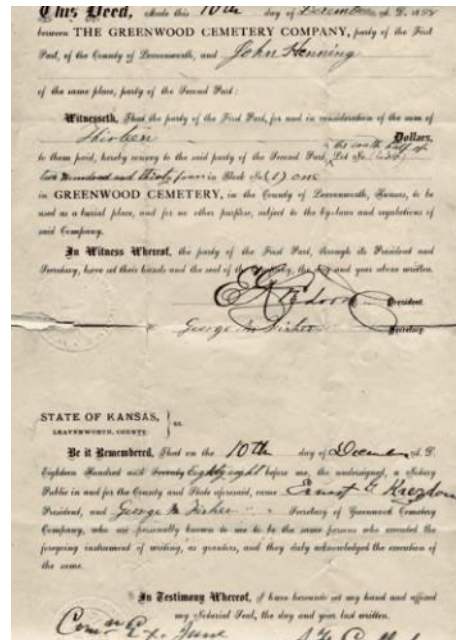 This Deed, Made this 10th day of December A. D. 1888
between THE GREENWOOD CEMETERY COMPANY, party of the First
Part, of the County of Leavenworth, and John Henning
of the same place, party of the Second Part:
Witnesseth, That the party of the First Part, for and in consideration of the sum of
Thirteen Dollars,
the south half of
to them paid, hereby convey to the said party of the Second Part, Lot No. (234)
two hundred and thirty four in Block No. (1) one
in GREENWOOD CEMETERY, in the County of Leavenworth, Kansas, to be
used as a burial place, and for no other purpose, subject to the by-laws and regulations of
said Company.
In Witness Whereof, the party of the First Part, through its President and
Secretary, have set their hands and the seal of the Company, the day and year above written.
President.
George M Fisher Secretary.
STATE OF KANSAS,
LEAVENWORTH, COUNTY } ss.
Be it Remembered, That on the 10th day of December A. D.
Eighteen Hundred and Seventy Eighty eight before me, the undersigned, a Notary
Public in and for the County and State aforesaid, came Ernest G
President, and George M Fisher Secretary of Greenwood Cemetery
Company, who are personally known to me to be the same persons who executed the
foregoing instrument of writing, as grantors, and they duly acknowledged the execution of
the same.
In Testimony Whereof, I have hereunto set my hand and affixed
my Notarial Seal, the day and year last written.
Comn Ex. June